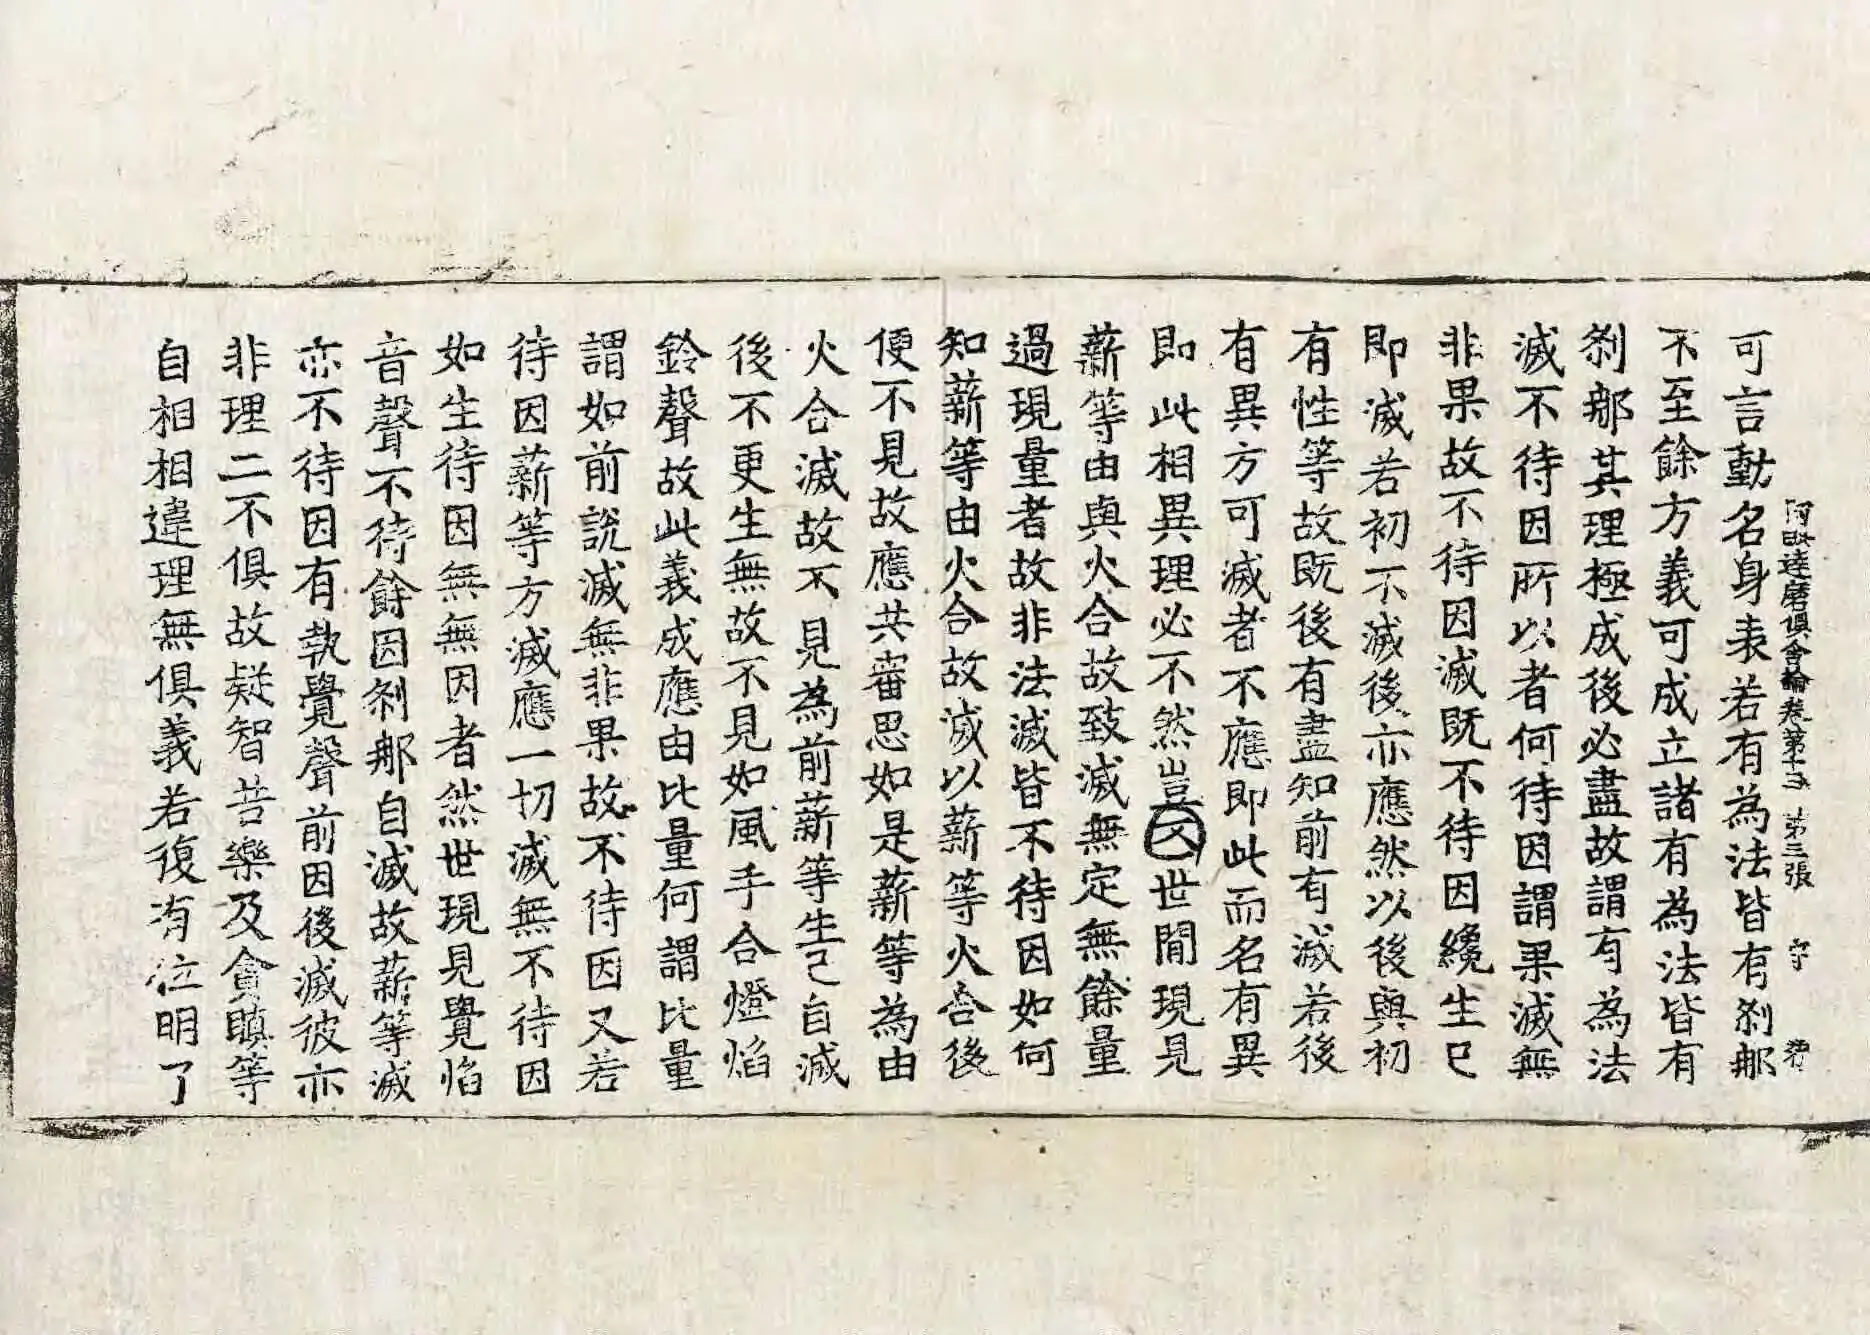 阿毗達磨俱舍論卷第十三 第三張 守
可言動名身表若有為法皆有剎那
不至餘方義可成立諸有為法皆有
剎那其理極成後必盡故謂有為法
滅不待因所以者何待因謂果滅無
非果故不待因滅既不待因纔生已
即滅若初不滅後亦應然以後與初
有性等故既後有盡知前有滅若後
有異方可滅者不應即此而名有異
即此相異理必不然豈不世間現見
薪等由與火合故致滅無定無餘量
過現量者故非法滅皆不待因如何
知薪等由火合故滅以薪等火合後
便不見故應共審思如是薪等為由
火合滅故不見為前薪等生已自滅
後不更生無故不見如風手合燈焰
鈴聲故此義成應由比量何謂比量
謂如前說滅無非果故不待因又若
待因薪等方滅應一切滅無不待因
如生待因無無因者然世現見覺焰
音聲不待餘因剎那自滅故薪等滅
亦不待因有執覺聲前因後滅彼亦
非理二不俱故疑智苦樂及貪瞋等
自相相違理無俱義若復有位明了